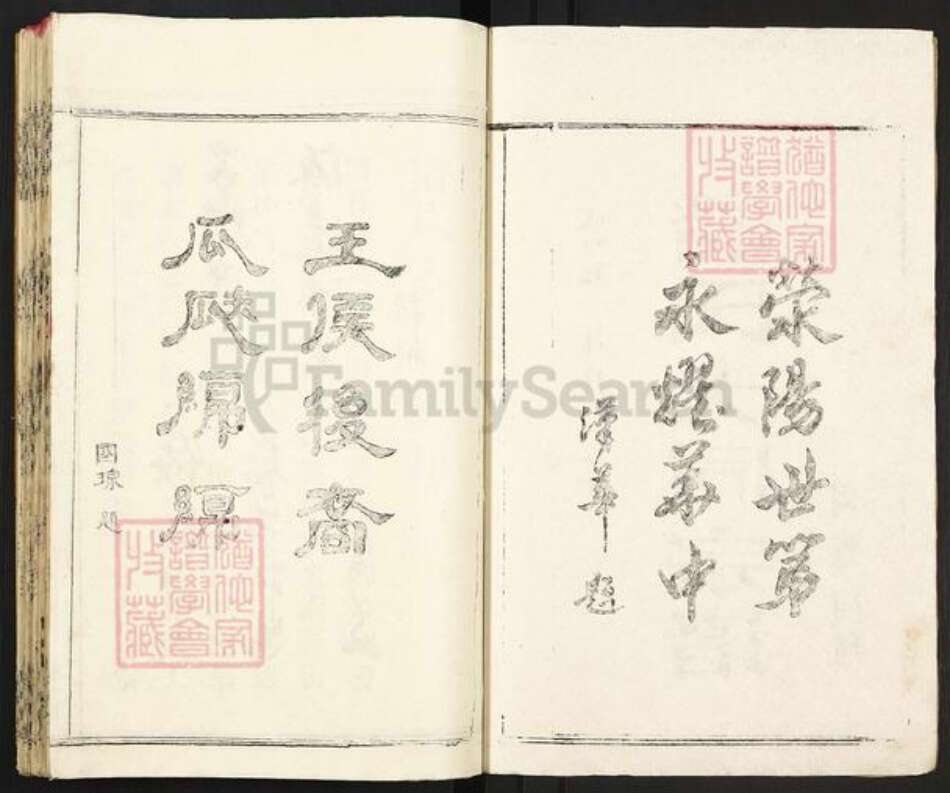 猶他家
譜學會
收藏
滎陽世第
永耀華中
漢華 題
王侯後裔
瓜瓞綿綿
國琮 題
猶他家
譜學會
收藏
FamilySearch